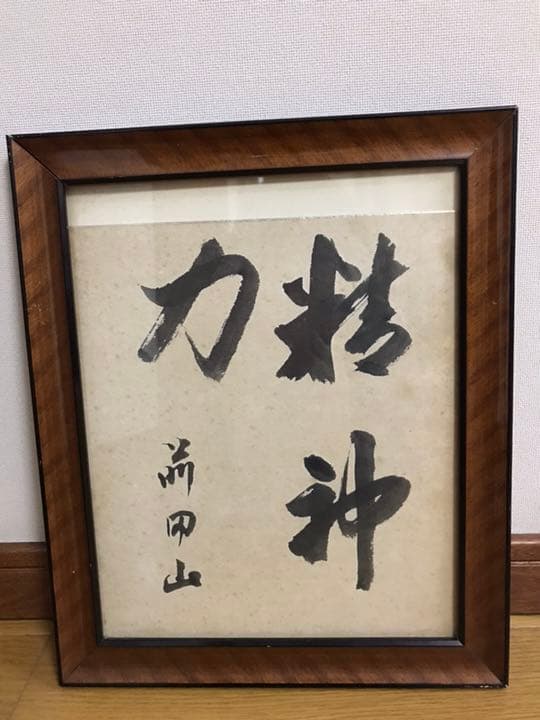 精神
力
前田山